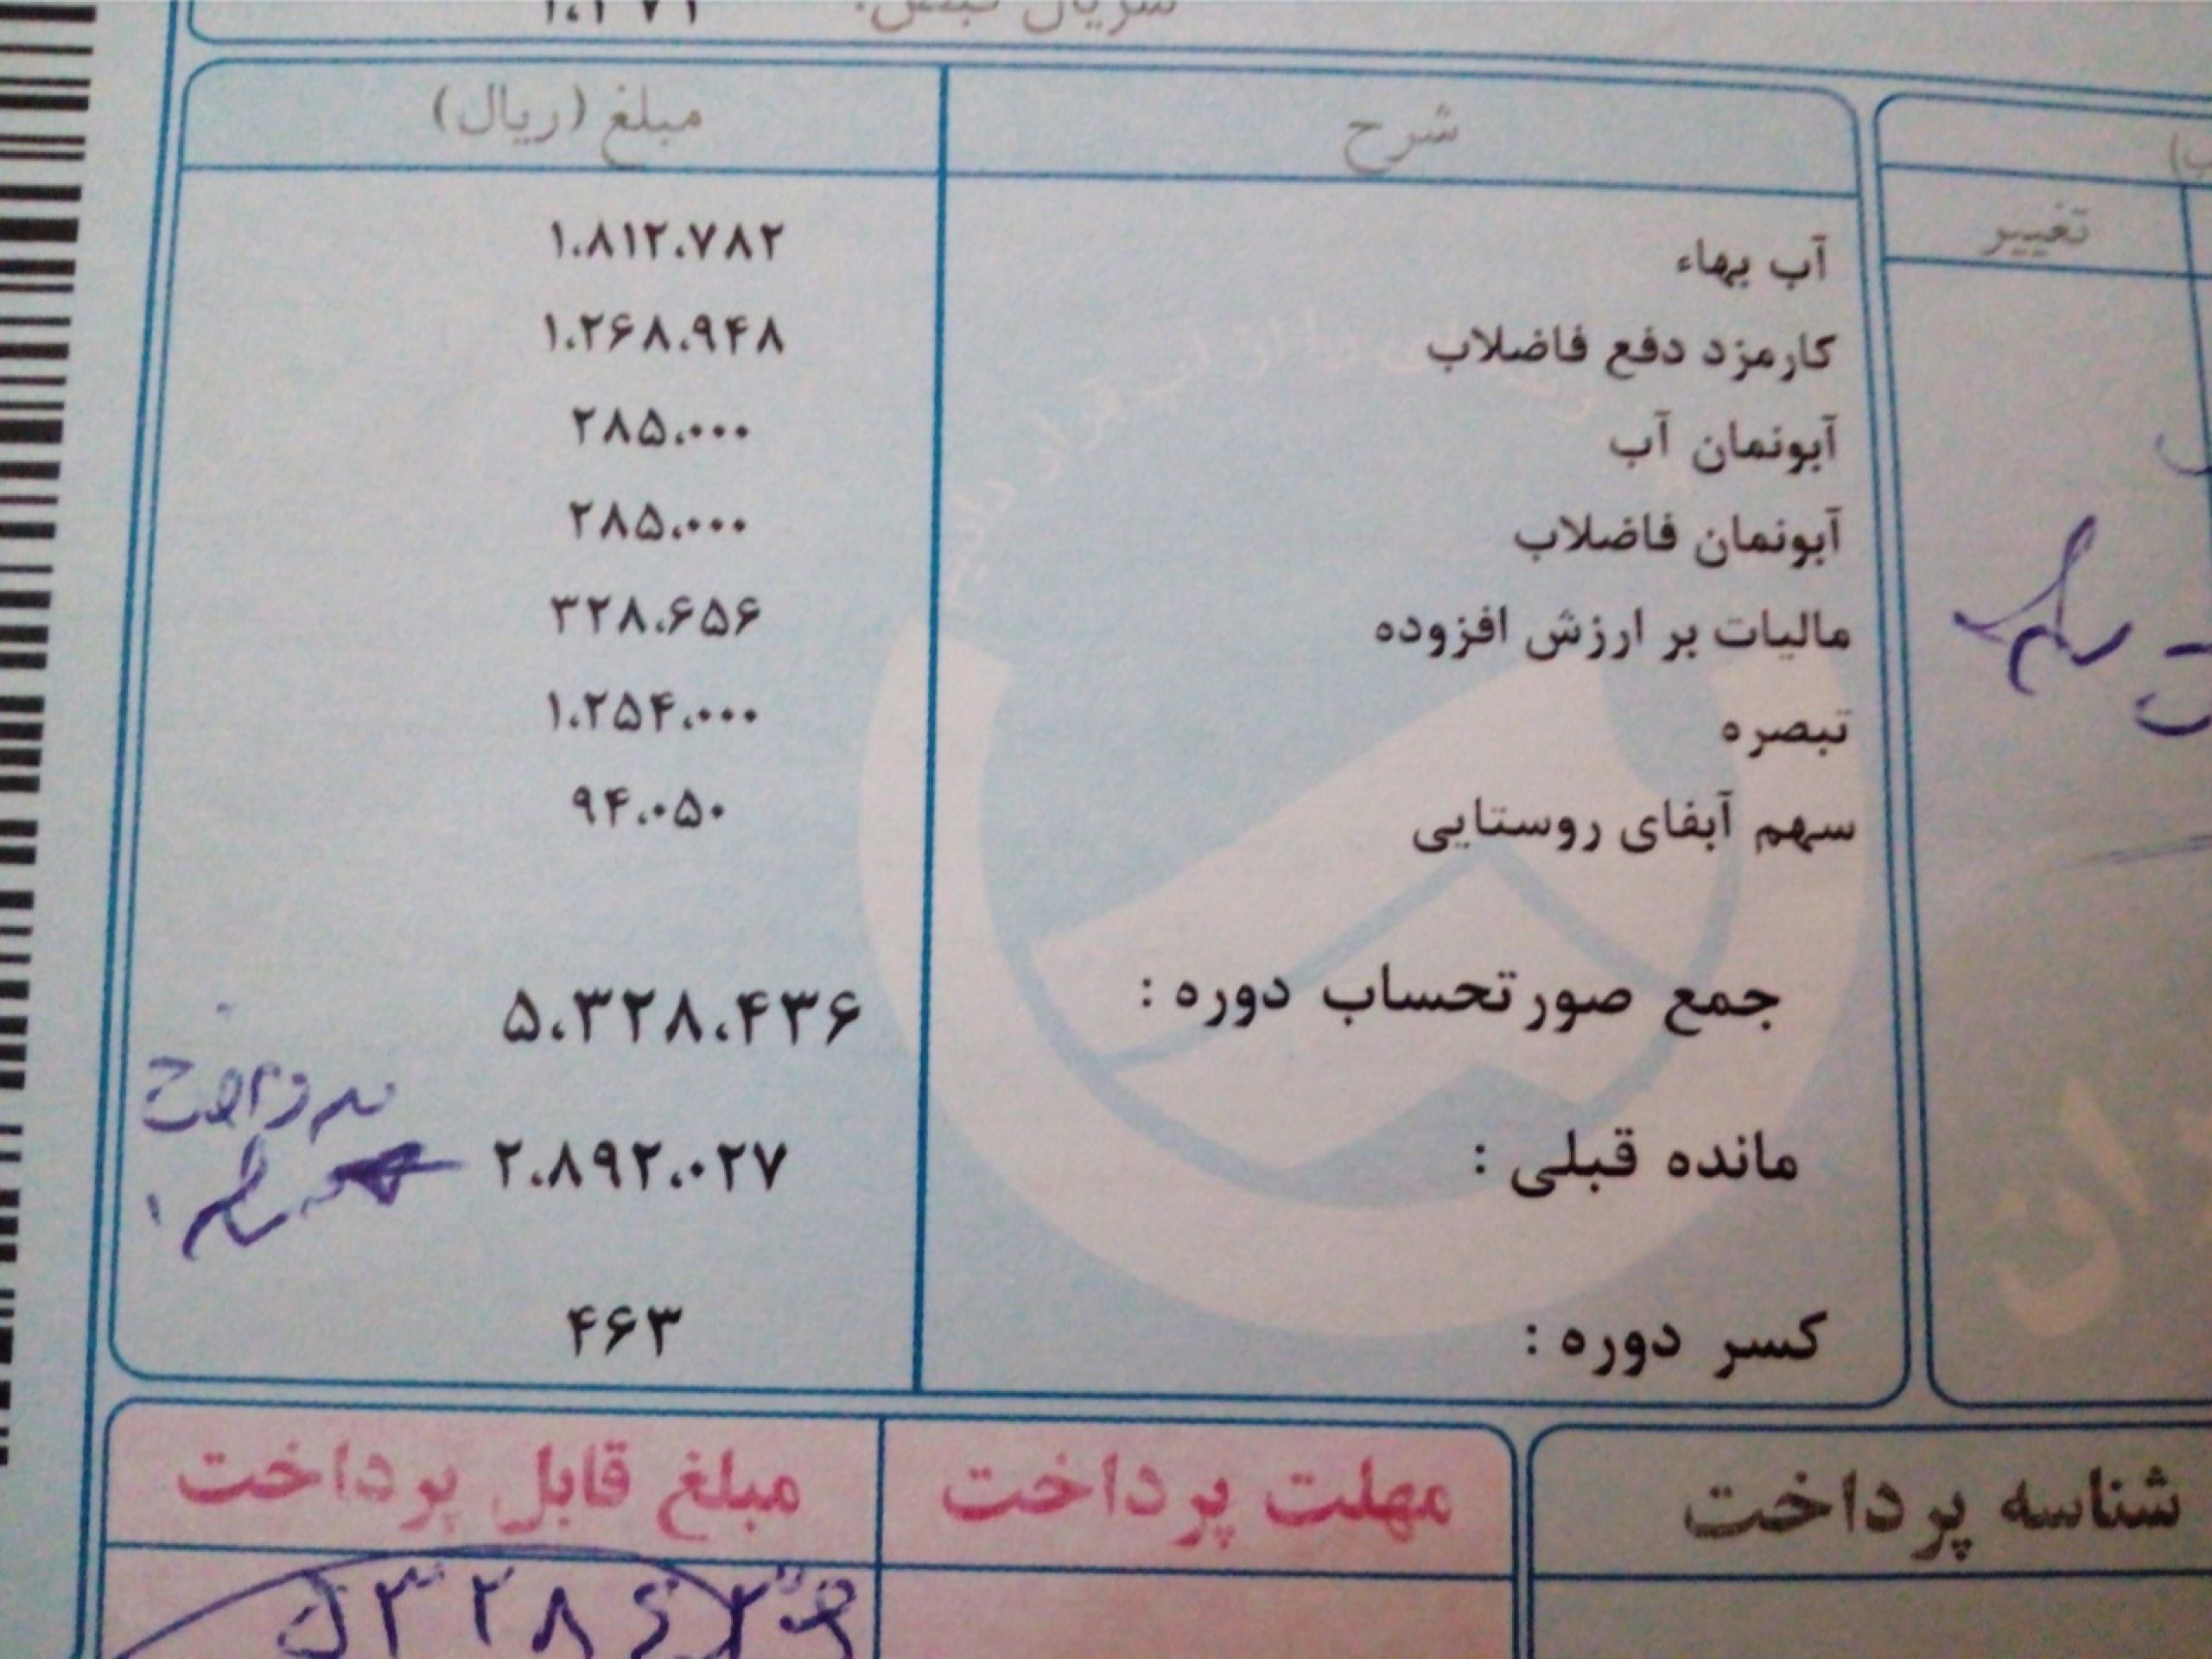 سریال قبض:
شرح مبلغ (ریال)
تغییر
آب بهاء ۱،۸۱۲،۷۸۲
کارمزد دفع فاضلاب ۱،۲۶۸،۹۴۸
آبونمان آب ۲۸۵،۰۰۰
آبونمان فاضلاب ۲۸۵،۰۰۰
مالیات بر ارزش افزوده ۳۲۸،۶۵۶
تبصره ۱،۲۵۴،۰۰۰
سهم آبفای روستایی ۹۴،۰۵۰
جمع صورتحساب دوره : ۵،۳۲۸،۴۳۶
مانده قبلی : ۲،۸۹۲،۰۲۷
کسر دوره : ۴۶۳
شناسه پرداخت مهلت پرداخت مبلغ قابل پرداخت